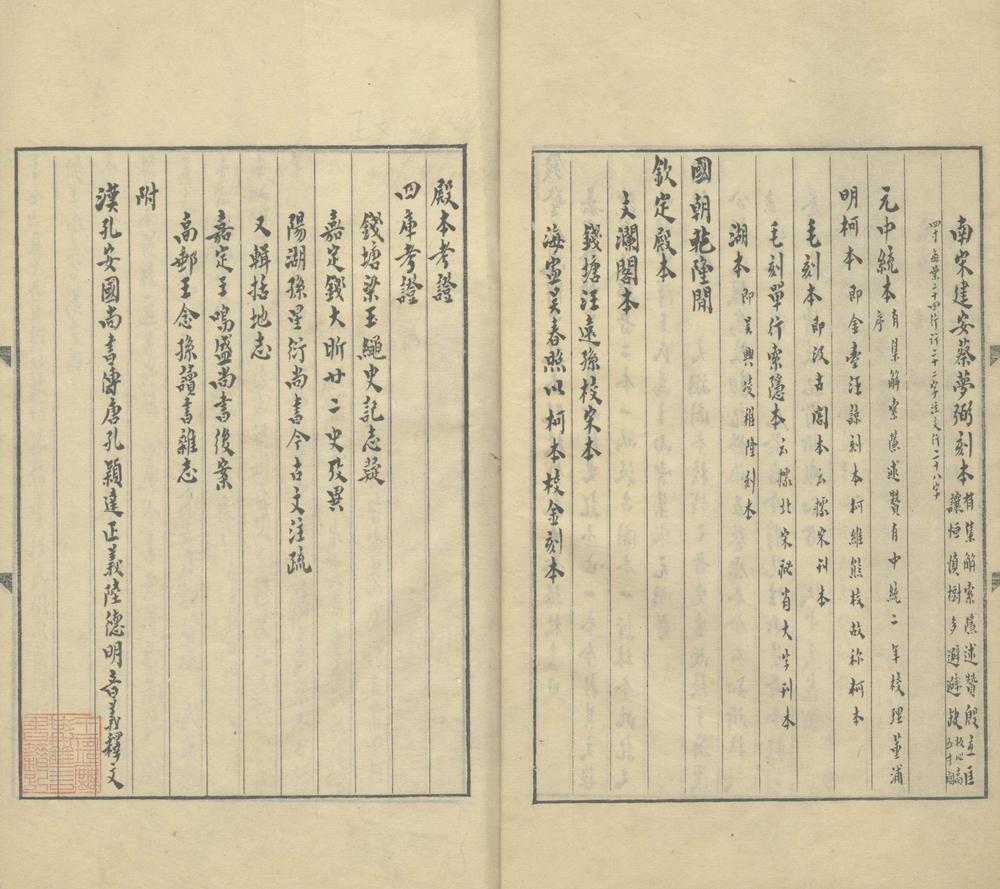 南宋建安蔡夢弼刻本 有集解索隱述贊殷玄匡
讓恒慎樹多避避
四十每葉二十四行行二十二字注文行二十八字
元中統本 有集解索隱述贊有中統二年校理董浦
序
明柯本 即金臺汪諒刻本柯維熊校故称柯本
毛刻本 即汲古閣本云據宋刊本
毛刻單行索隱本 云據北宋祕省大字刊本
湖本 即吳興凌稚隆刻本
國朝乾隆間
欽定殿本
文瀾閣本
錢塘汪遠孫校宋本
海寧吳春照以柯本校金刻本
殿本考證
四庫考證
錢塘梁玉繩史記志疑
嘉定錢大昕廿二史攷異
陽湖孫星衍尚書今古文注疏
又輯括地志
嘉定王鳴盛尚書後案
高郵王念孫讀書雜志
附
漢孔安國尚書傳唐孔穎達正義陸德明音義釋文